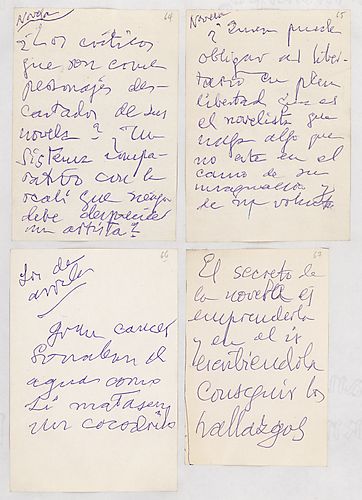 Novela
64
¿Los críticos
que son como
personajes des-
cartados de sus
novelas? ¿Un
sistema compa-
rativo con la
que
debe desprender
un artista?
Novela
65
¿Quien puede
obligar al liber-
tario en plena
libertad que es
el novelista que
haga algo que
no está en el
camino de su
imaginación y
de su voluntad
66
Los de
arriba
Gran cancer
Sonaban el
agua como
si matasen
un cocodrilo
67
El secreto de
la novela es
emprenderla
y en el ir
escribiendola
conseguir los
hallazgos